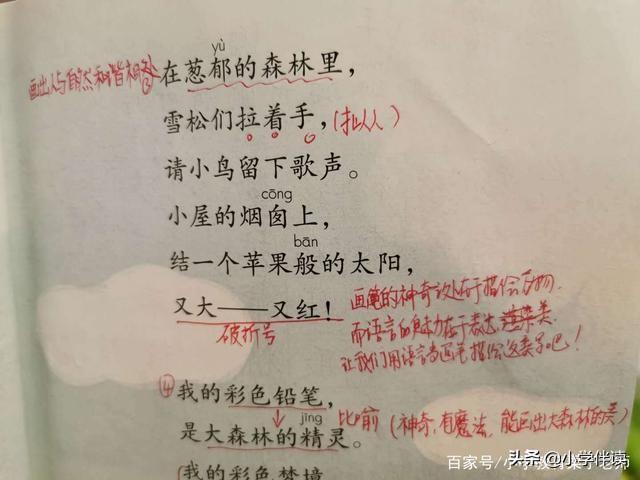 画出人与自然和谐相处
yù
在葱郁的森林里，
雪松们拉着手，(拟人)
请小鸟留下歌声。
cōng
小屋的烟囱上，
bān
结一个苹果般的太阳，
又大——又红！
破折号
画笔的神奇之处在于描绘万物，
而语言的魅力在于表达美。
让我们用语言当画笔描绘这美景吧！
④我的彩色铅笔，
jīng
是大森林的精灵。
比喻 (神奇，有魔法，能画出大森林的美)
(我的彩色梦境
头条 @小学伴读
百家号/小学教
老师